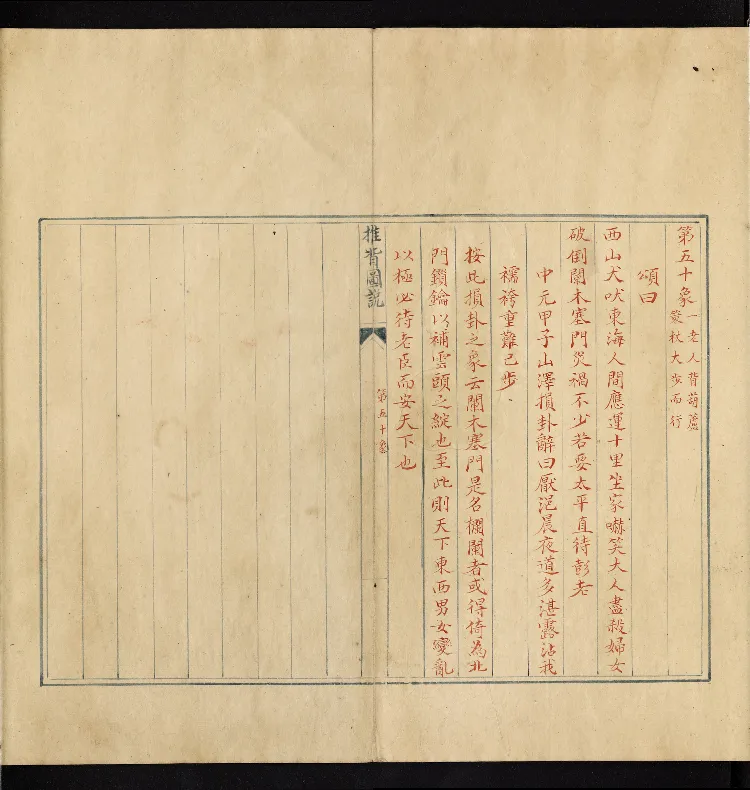 第五十象一老人背葫蘆
䇿杖大步而行
頌曰
西山犬吠東海人間應運十里坐家嚇笑大人盡殺婦女
破倒闌木塞門災禍不少若要太平直待彭老
中元甲子山澤損卦辭曰厭浥晨夜道多湛露沾我
襦袴重難已步
按此損卦之象云闌木塞門是名欄闌者或得倚為北
門鎖鑰以補雲頭之綻也至此則天下東西男女變亂
以極必待老臣而安天下也
推背圖説
第五十象